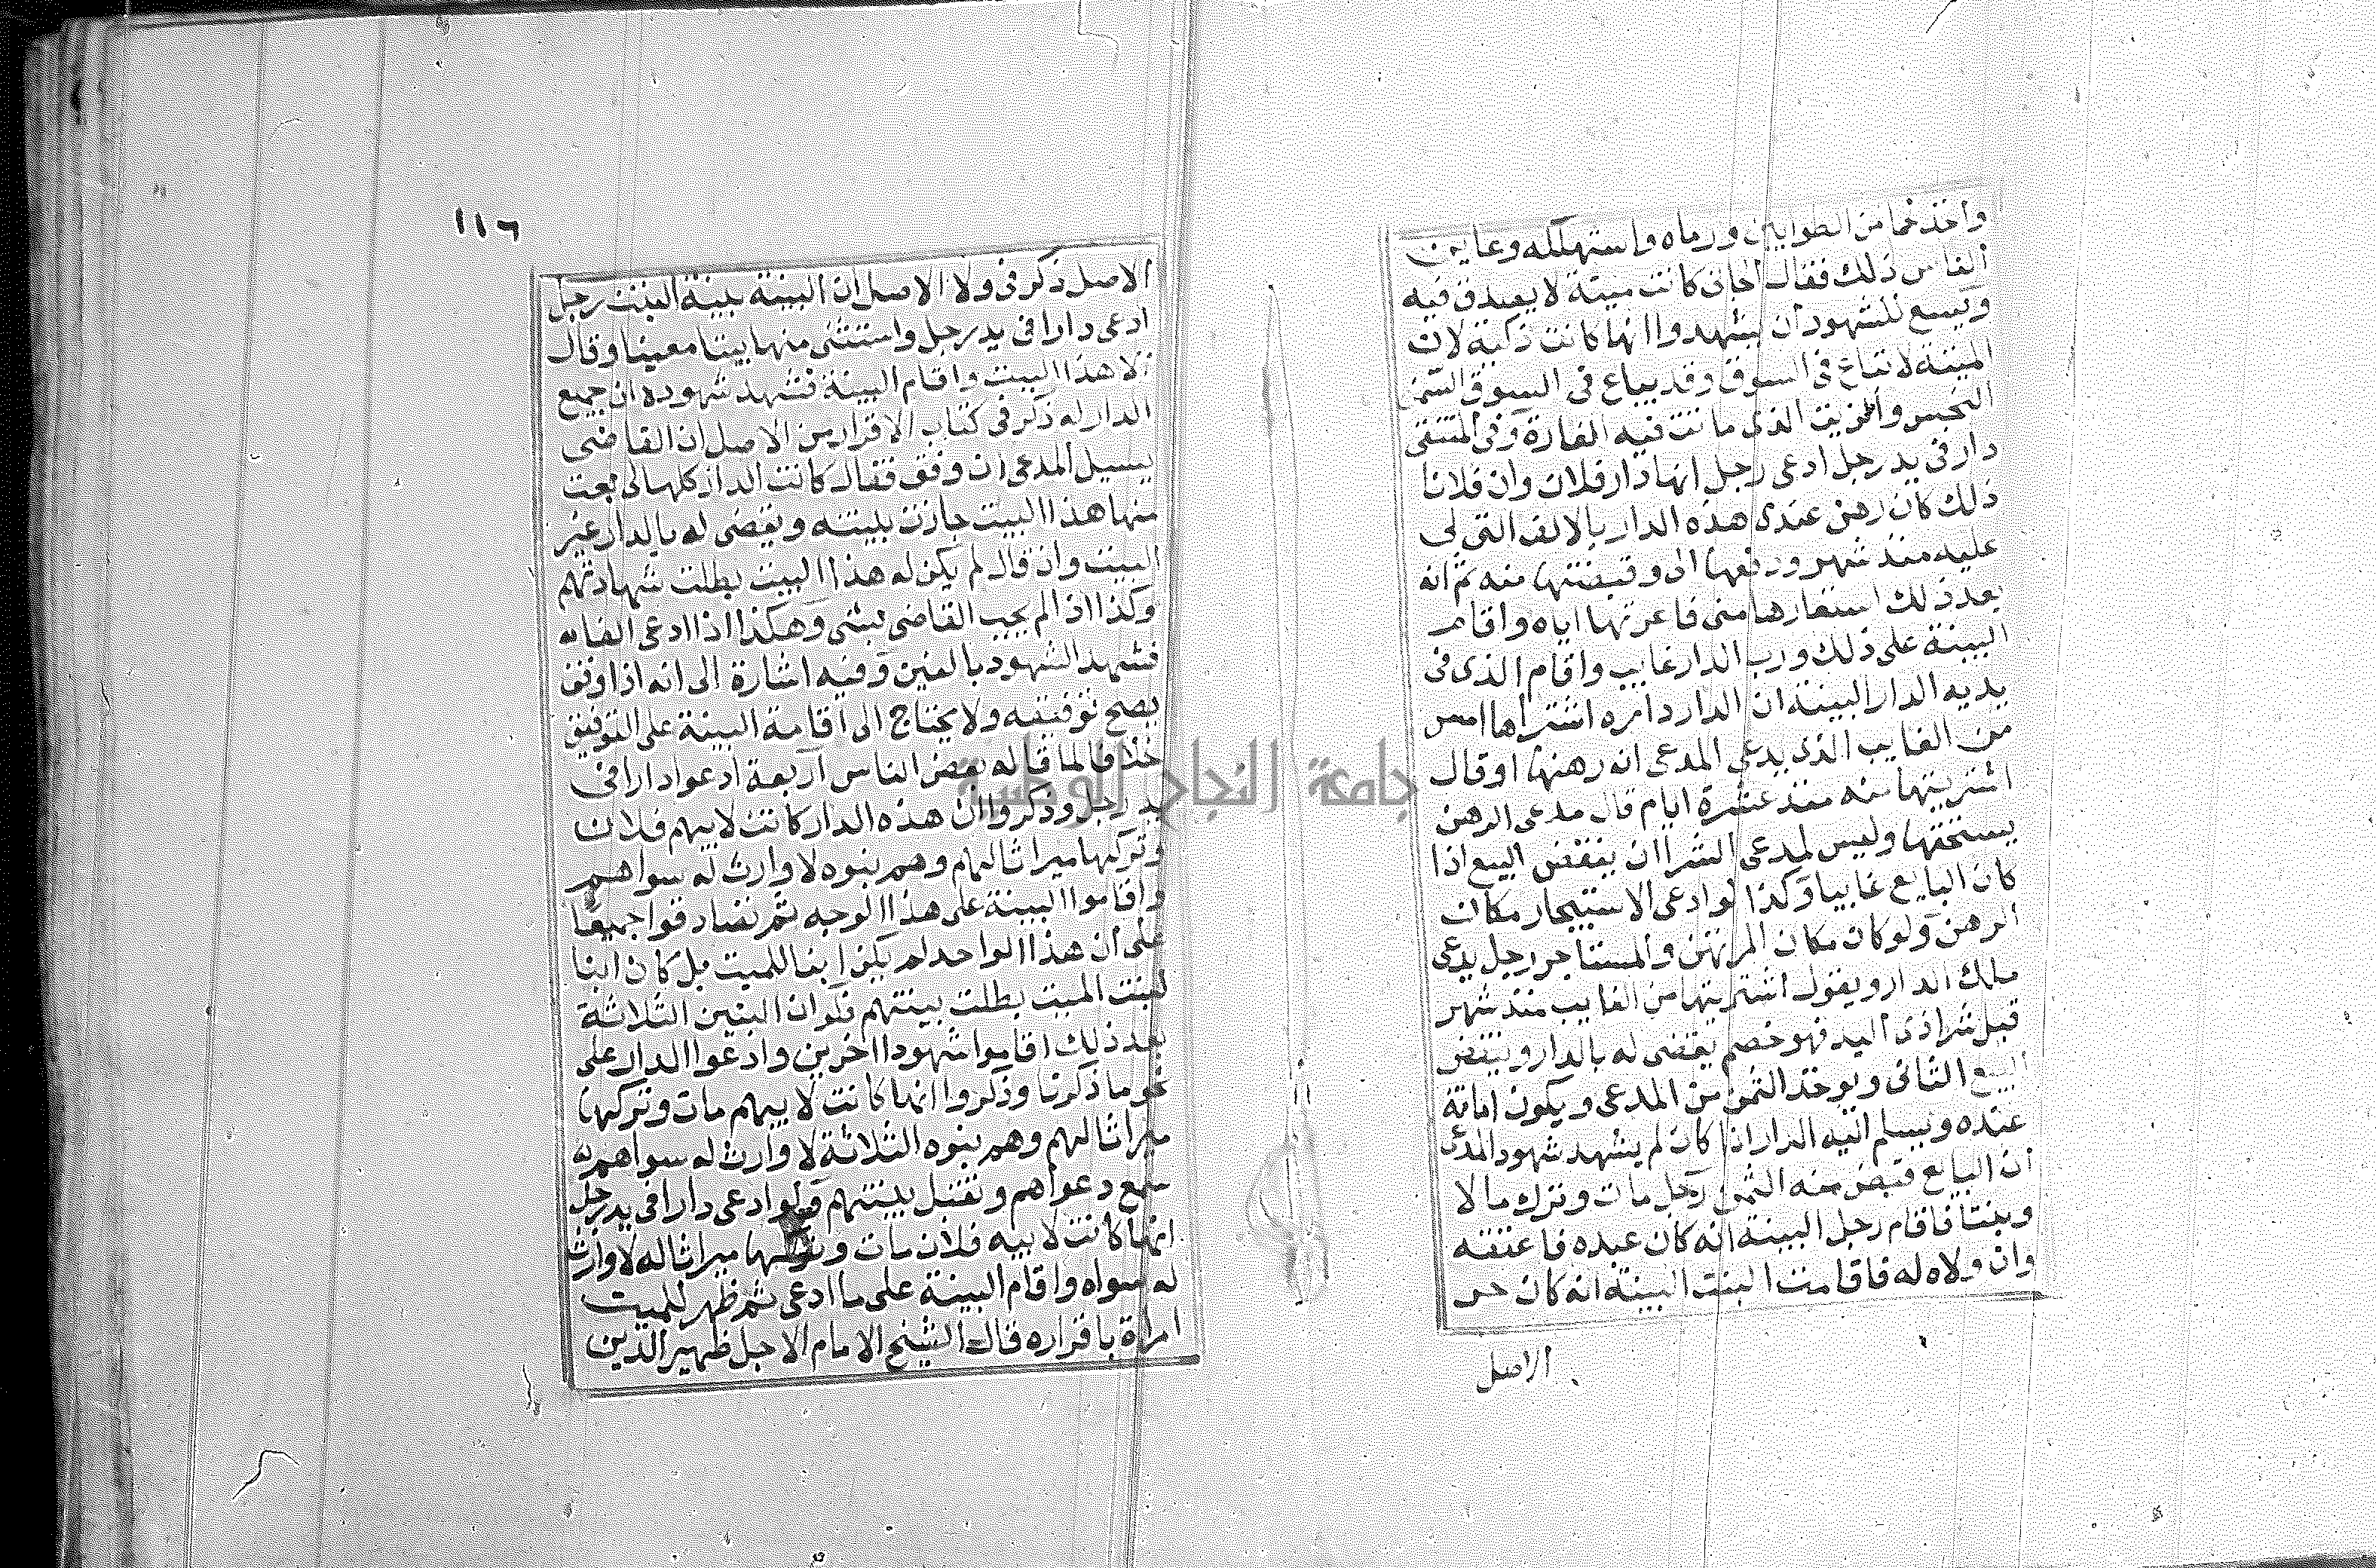 واخذ لحما من الطوابين ورماه واستهلكه وعاين
الناس ذلك فقال الجانى كانت ميتة لا يصدق فيه
ويسع للشهود ان يشهدوا انها كانت ذكية لان
الميتة لا تباع فى السوق وقد يباع فى السوق السمن
النجس والزيت الذى ماتت فيه الفارة وفى المنتقى
دار فى يد رجل ادعى رجل انها دار فلان وان فلانا
ذلك كان رهن عندى هذه الدار بالالف التى لى
عليه منذ شهر ودفعها الى وقبضتها منه ثم انه
بعد ذلك استعارها منى فاعرتها اياه واقام
البينة على ذلك ورب الدار غايب واقام الذى فى
يديه الدار البينة ان الدار داره اشتراها امس
من الغايب الذى يدعى المدعى انه رهنها او قال
اشتريتها منه منذ عشرة ايام قال مدعى الرهن
يستحقها وليس لمدعى الشرا ان ينقض البيع اذا
كان البايع غايبا وكذا لو ادعى الاستيجار مكان
الرهن ولو كان مكان المرتهن والمستاجر رجل يدعى
ملك الدار ويقول اشتريتها من الغايب منذ شهر
قبل شرا ذى اليد فهو خصم يقضى له بالدار وينقض
البيع الثانى ويوخذ الثمن من المدعى ويكون امانة
عنده ويسلم اليه الدار اذا كان لم يشهد شهود المدعى
ان البايع قبض منه الثمن رجل مات وترك مالا
وبنتا فاقام رجل البينة انه كان عبده فاعتقه
وان ولاه له فاقامت البنت البينة انه كان حر
الاصل
١١٦
الاصل ذكر فى ولا الاصل ان البينة بينة البنت رجل
ادعى دارا فى يد رجل واستثنى منها بيتا معينا وقال
الا هذا البيت واقام البينة فشهد شهوده ان جميع
الدار له ذكر فى كتاب الاقرار من الاصل ان القاضى
يسيل المدعى ان وفق فقال كانت الدار كلها لى فبعت
منها هذا البيت جازت بينته ويقضى له بالدار غير
البيت وان قال لم يكن له هذا البيت بطلت شهادتهم
وكذا اذا لم يجب القاضى بشى وهكذا اذا ادعى الفا له
فشهد الشهود بالفين وفيه اشارة الى انه اذا وفق
يصح توفيقه ولا يحتاج الى اقامة البينة على التوفيق
خلافا لما قاله بعض الناس اربعة ادعوا دارا فى
يد رجل وذكروا ان هذه الدار كانت لابيهم فلان
وتركها ميراثا لهم وهم بنوه لا وارث له سواهم
واقاموا البينة على هذا الوجه ثم تصادقوا جميعا
على ان هذا الواحد لم يكن ابنا للميت بل كان ابنا
لبنت الميت بطلت بينتهم فلو ان البنين الثلاثة
بعد ذلك اقاموا شهودا اخرين وادعوا الدار على
نحو ما ذكرنا وذكروا انها كانت لابيهم مات وتركها
ميراثا لهم وهم بنوه الثلاثة لا وارث له سواهم
سمع دعواهم وتقبل بينتهم ولو ادعى دارا فى يد رجل
انها كانت لابيه فلان مات وتركها ميراثا له لا وارث
له سواه واقام البينة على ما ادعى ثم ظهر للميت
امراة باقراره قال الشيخ الامام الاجل ظهير الدين
جامعة النجاح الوطنية